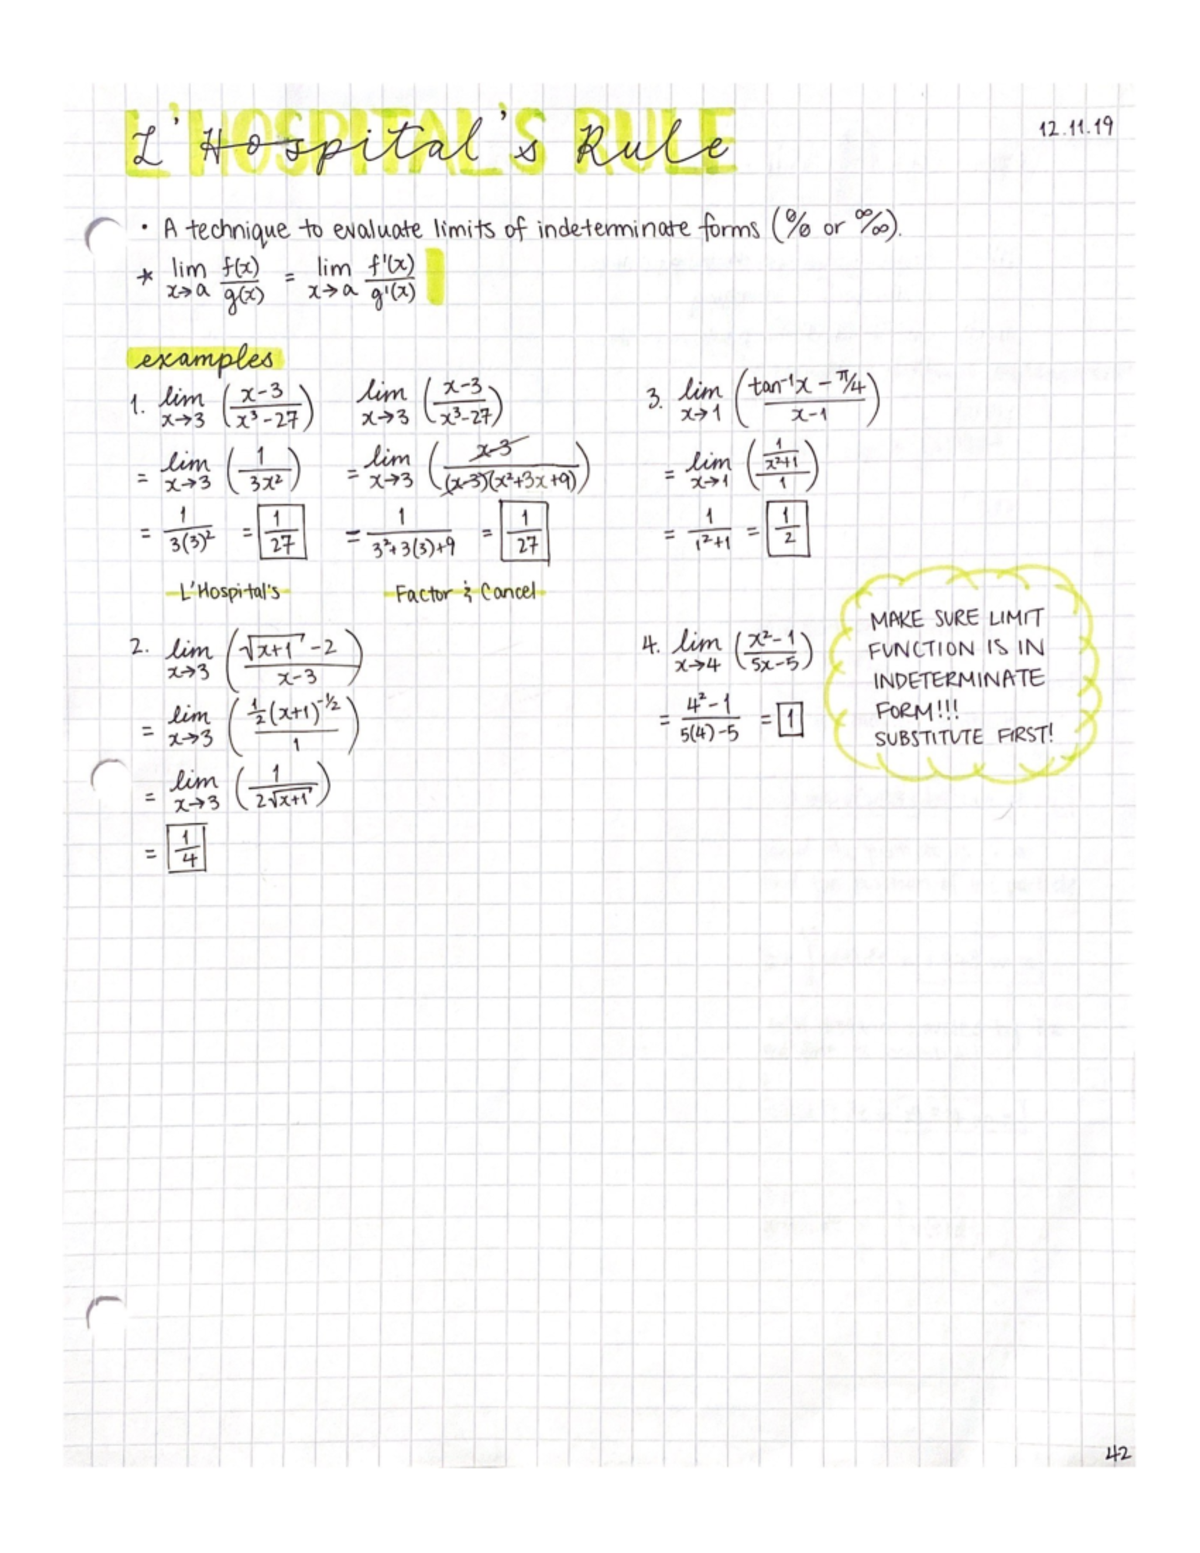 L'Hospital's Rule
12.11.19
• A technique to evaluate limits of indeterminate forms (0/0 or ∞/∞).
* lim x→a f(x)/g(x) = lim x→a f'(x)/g'(x)
examples
1. lim x→3 ((x-3)/(x³-27))
= lim x→3 (1/(3x²))
= 1/(3(3)²) = 1/27
L'Hospital's
lim x→3 ((x-3)/(x³-27))
= lim x→3 ((x-3)/((x-3)(x²+3x+9)))
= 1/(3²+3(3)+9) = 1/27
Factor & Cancel
3. lim x→1 ((tan⁻¹x - π/4)/(x-1))
= lim x→1 ((1/(x²+1))/1)
= 1/(1²+1) = 1/2
2. lim x→3 ((√(x+1) - 2)/(x-3))
= lim x→3 ((1/2(x+1)^(-1/2))/1)
= lim x→3 (1/(2√(x+1)))
= 1/4
4. lim x→4 ((x²-1)/(5x-5))
= (4²-1)/(5(4)-5) = 1
MAKE SURE LIMIT
FUNCTION IS IN
INDETERMINATE
FORM!!!
SUBSTITUTE FIRST!
42